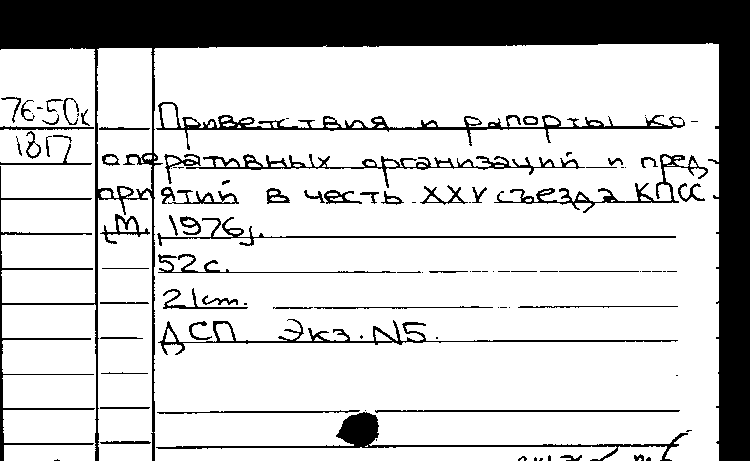 76-50к
181
Приветствия и рапорты ко-
оперативных организаций и пред-
приятий в честь XXV съезда КПСС.
[М., 1976].
52 с.
21 cm.
ДСП. Экз. N5.